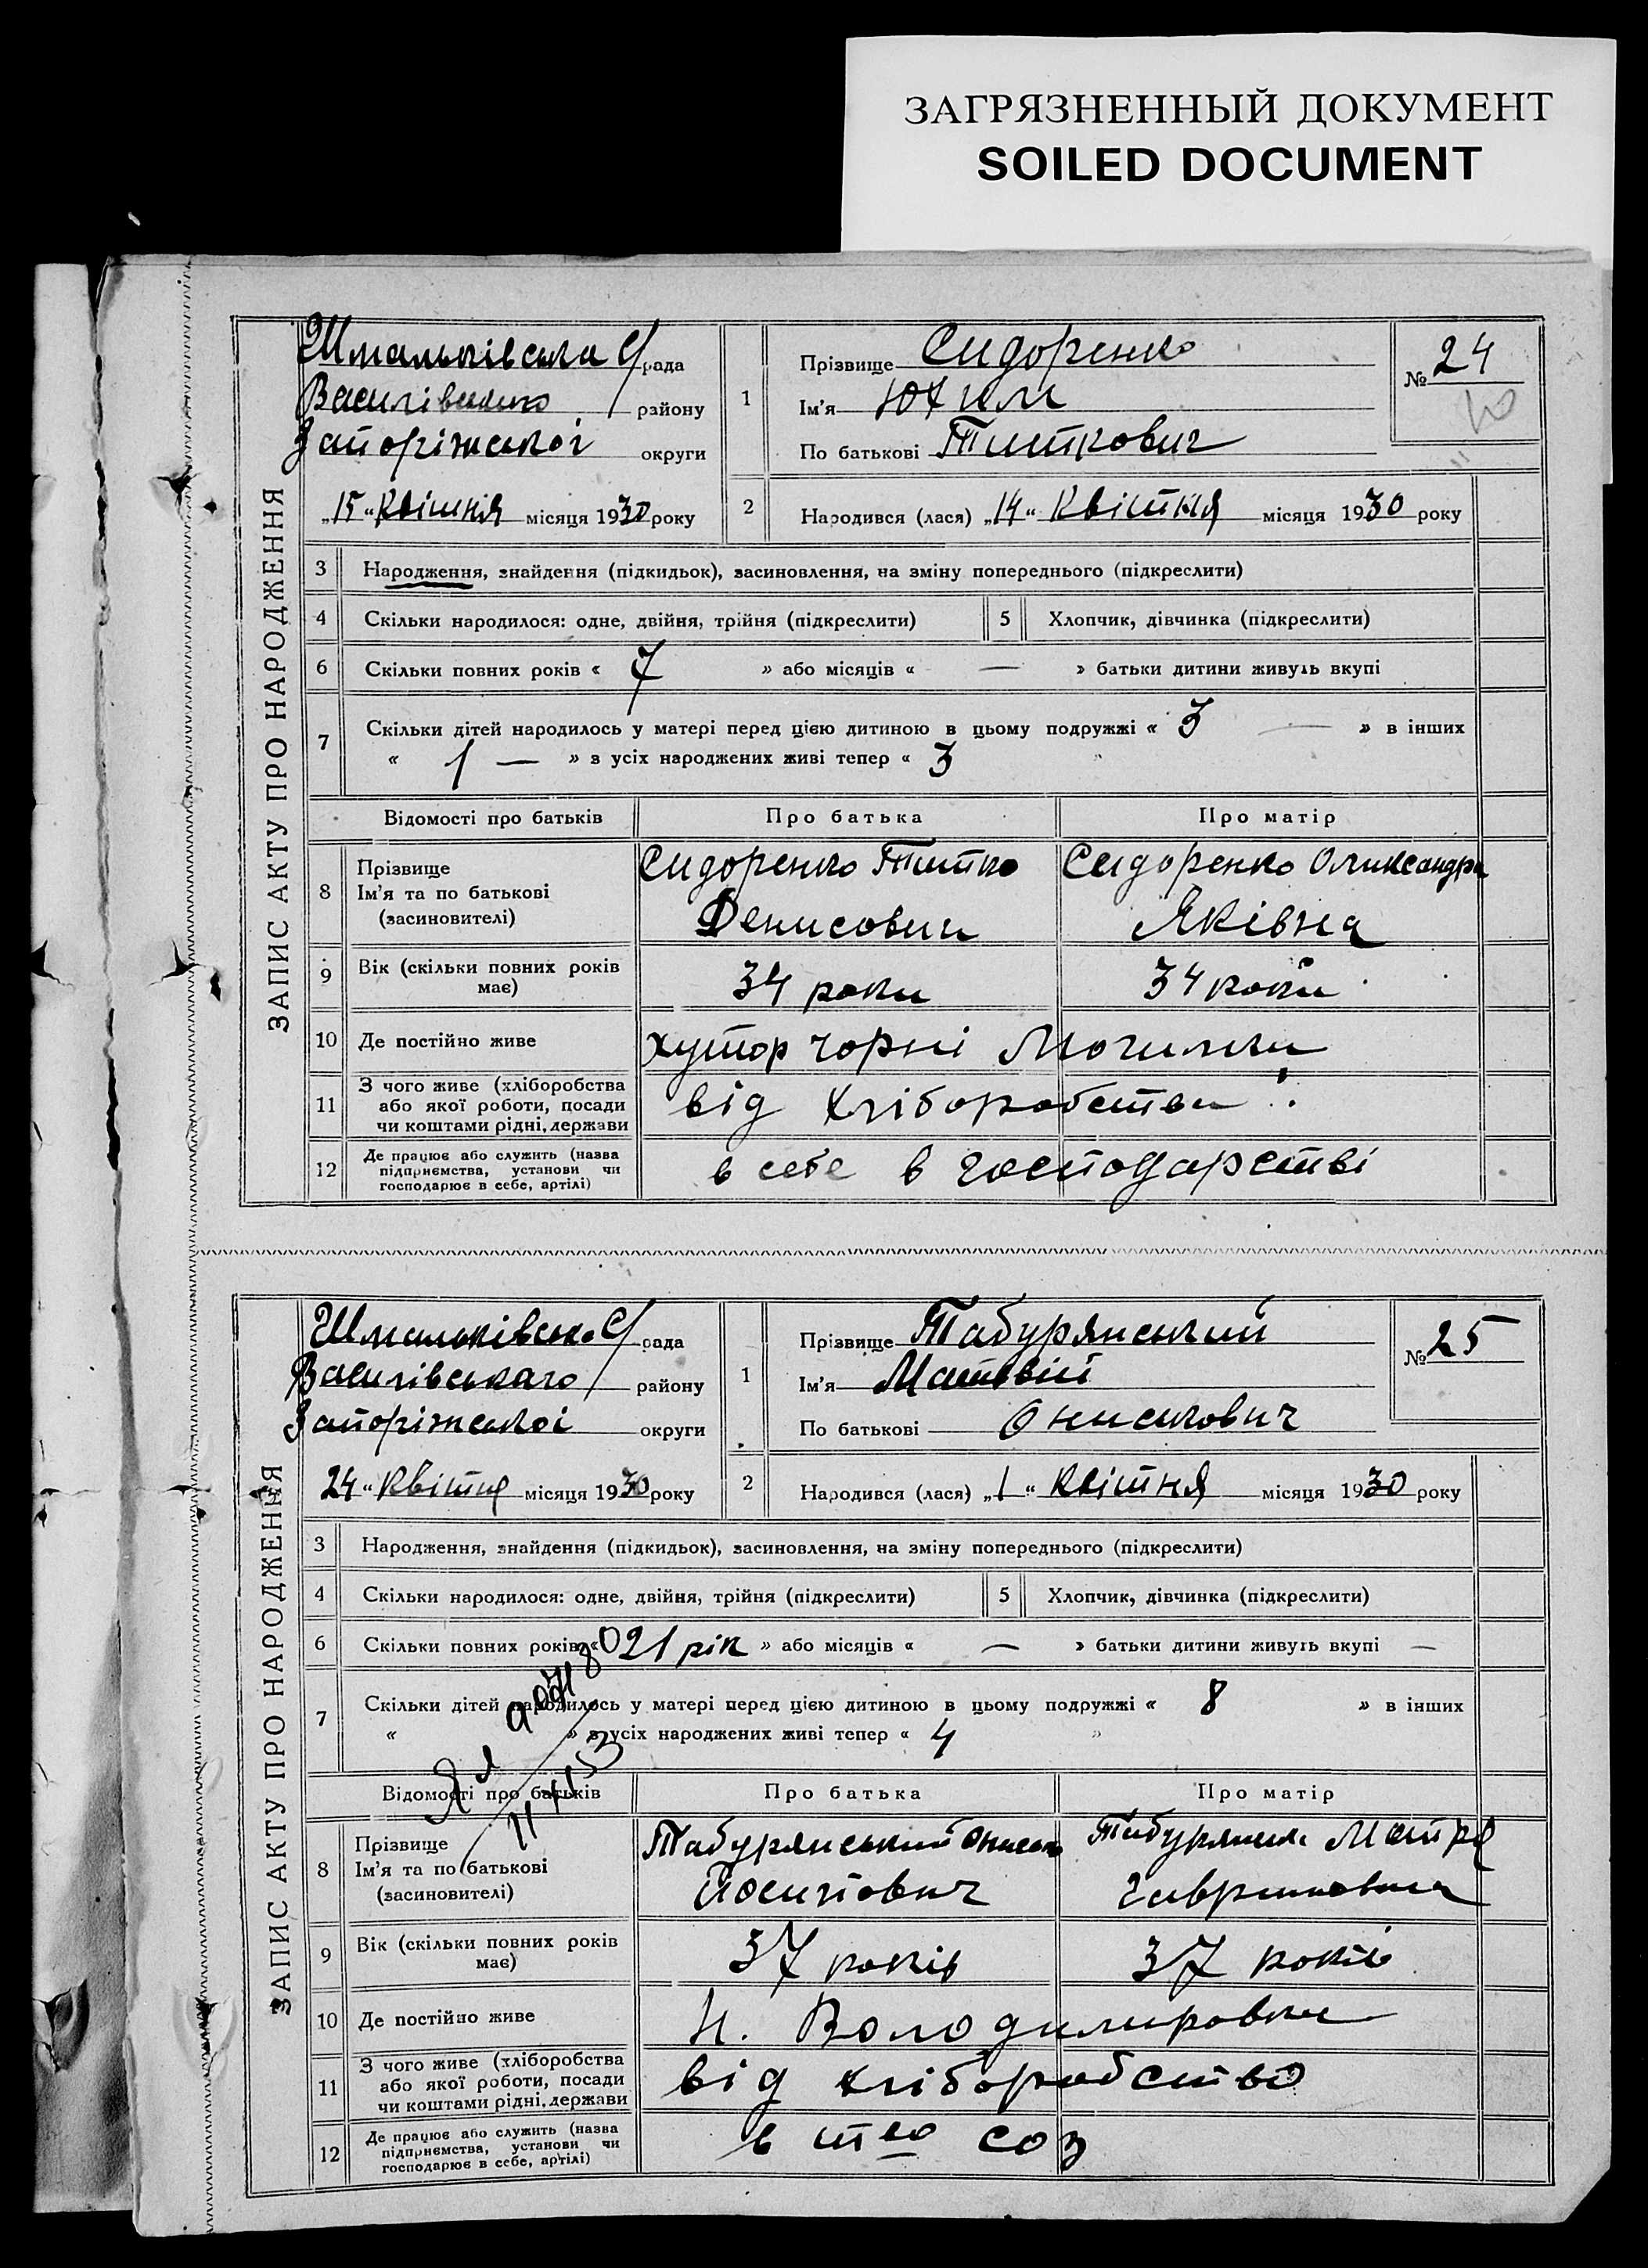 ЗАГРЯЗНЕННЫЙ ДОКУМЕНТ
SOILED DOCUMENT
ЗАПИС АКТУ ПРО НАРОДЖЕННЯ
Шмальківська С/рада
Василівського району
Запоріжської округи
„15“ Квітня місяця 1930 року
1
Прізвище Сидоренко
Ім'я Юхим
По батькові Титкович
№ 24
10
2 Народився (лася) „14“ Квітня місяця 1930 року
3 Народження, знайдення (підкидьок), засиновлення, на зміну попереднього (підкреслити)
4 Скільки народилося: одне, двійня, трійня (підкреслити) 5 Хлопчик, дівчинка (підкреслити)
6 Скільки повних років « 7 » або місяців « — » батьки дитини живуть вкупі
7 Скільки дітей народилось у матері перед цією дитиною в цьому подружжі « 3 — » в інших
« 1 — » з усіх народжених живі тепер « 3 »
Відомості про батьків Про батька Про матір
8 Прізвище
Ім'я та по батькові
(засиновителі)
Сидоренко Титко
Денисович
Сидоренко Олександра
Яківна
9 Вік (скільки повних років має) 34 роки 34 роки
10 Де постійно живе хутор Чорні Могили
11 З чого живе (хліборобства
або якої роботи, посади
чи коштами рідні, держави
від хліборобства
12 Де працює або служить (назва
підприємства, установи чи
господарює в себе, артілі)
в себе в господарстві
ЗАПИС АКТУ ПРО НАРОДЖЕННЯ
Шмальківська С/рада
Василівського району
Запоріжської округи
24“ Квітня місяця 1930 року
1
Прізвище Табурянський
Ім'я Матвій
По батькові Онискович
№ 25
2 Народився (лася) „1“ Квітня місяця 1930 року
3 Народження, знайдення (підкидьок), засиновлення, на зміну попереднього (підкреслити)
4 Скільки народилося: одне, двійня, трійня (підкреслити) 5 Хлопчик, дівчинка (підкреслити)
6 Скільки повних років « 21 рік » або місяців « — » батьки дитини живуть вкупі —
7 Скільки дітей народилось у матері перед цією дитиною в цьому подружжі « 8 » в інших
« » з усіх народжених живі тепер « 4 »
Відомості про батьків Про батька Про матір
8 Прізвище
Ім'я та по батькові
(засиновителі)
Табурянський Онисько
Йосипович
Мотря
Гавриловна
9 Вік (скільки повних років має) 37 років 37 років
10 Де постійно живе Н. Володимировка
11 З чого живе (хліборобства
або якої роботи, посади
чи коштами рідні, держави
від хліборобство
12 Де працює або служить (назва
підприємства, установи чи
господарює в себе, артілі)
в тво соз